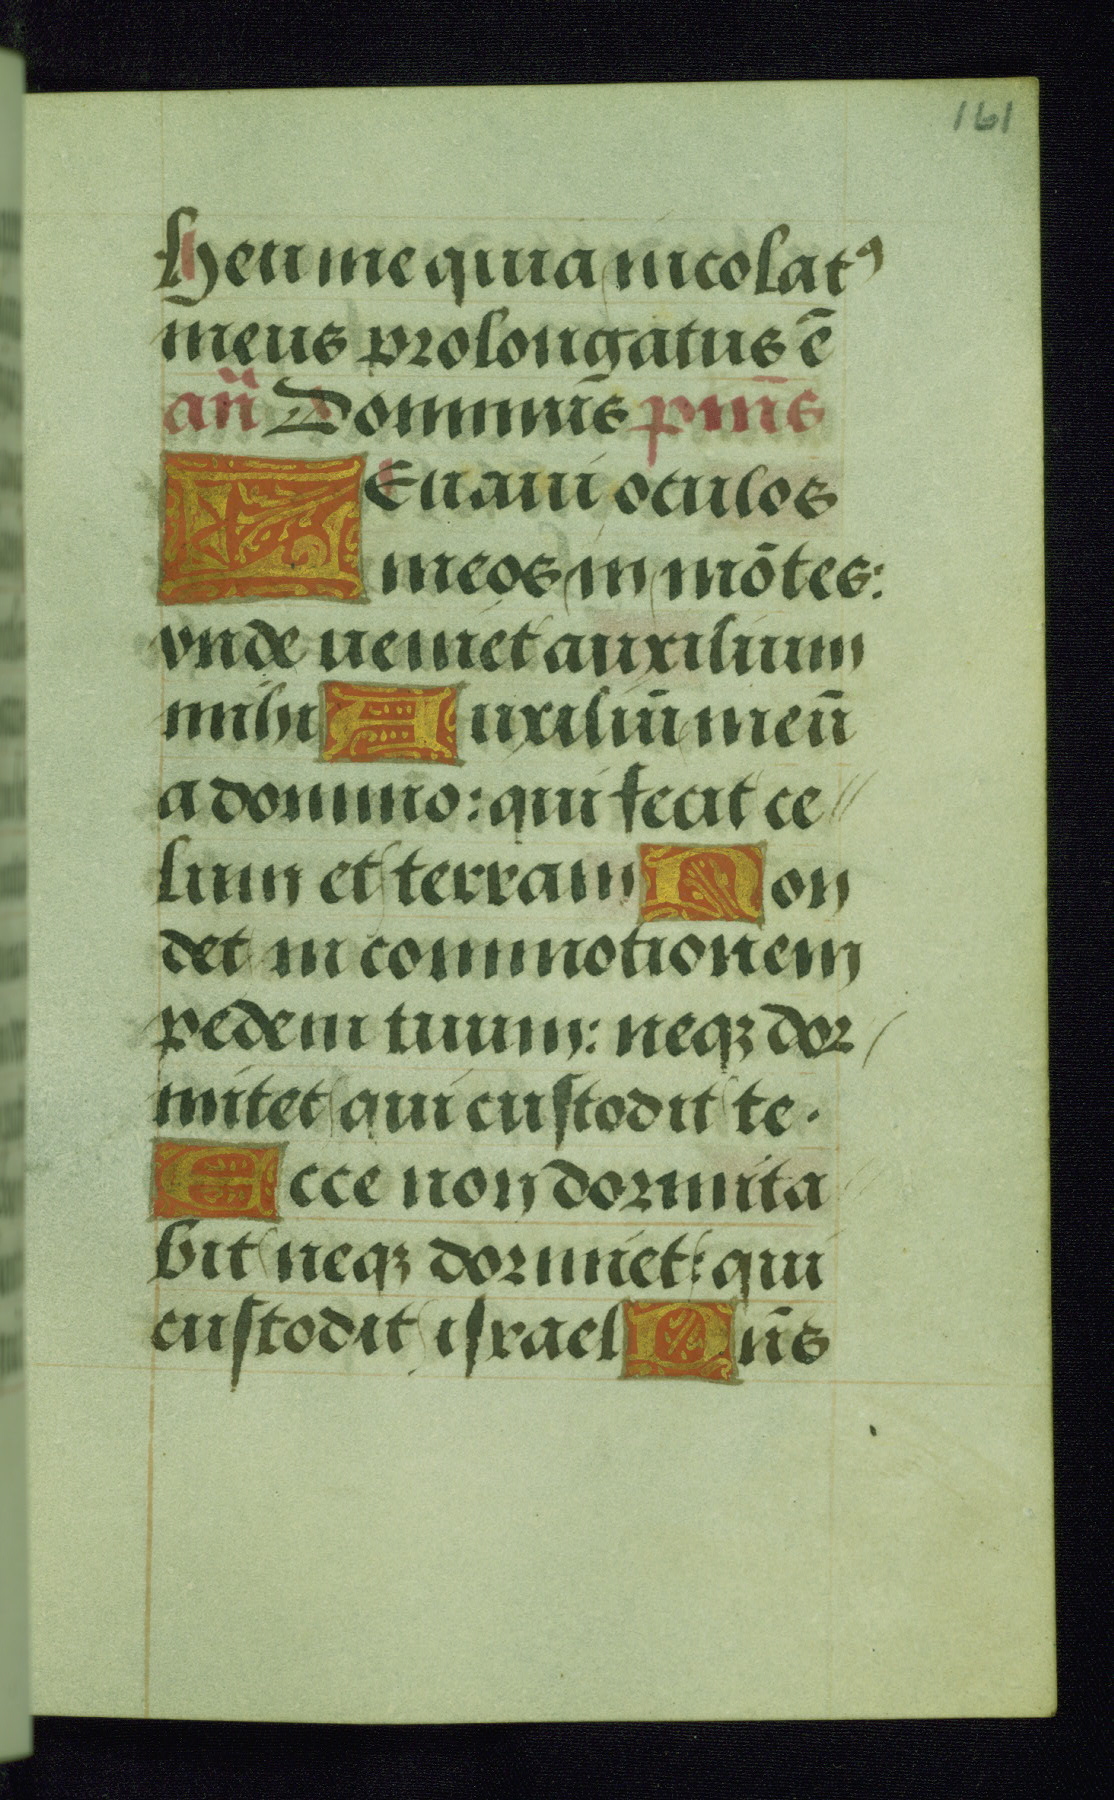 161
Heu me quia incolatꝰ
meus prolongatus ē
añ Dominus̄ p̄ms̄
LEuaui oculos
meos in mōtes:
vnde ueniet auxilium
mihi Auxiliū meū
a domino: qui fecit ce//
lum et terram Non
det in commotionem
pedem tuum: neqꝫ dor/
mitet qui custodit te.
Ecce non dormita
bit neqꝫ dormiet: qui
custodit israel Dn̄s